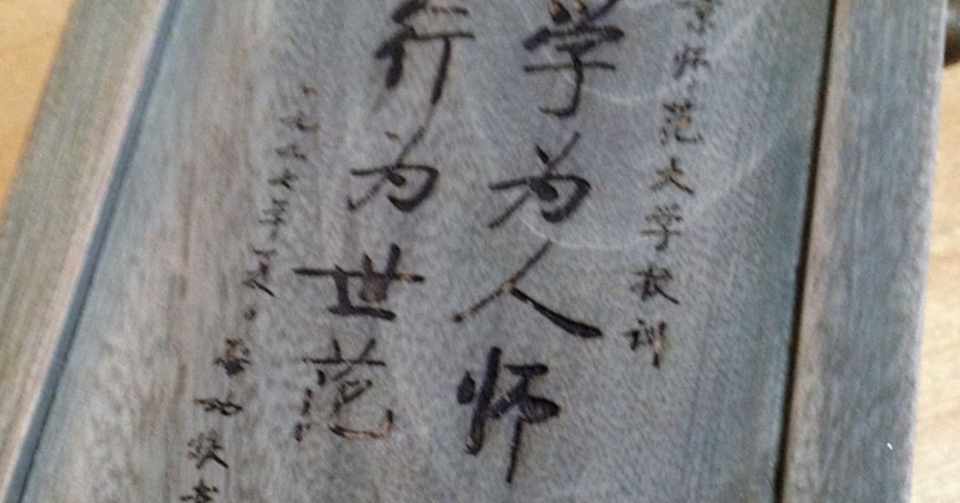 京师范大学校训
学为人师
行为世范
一九九七年夏
启功